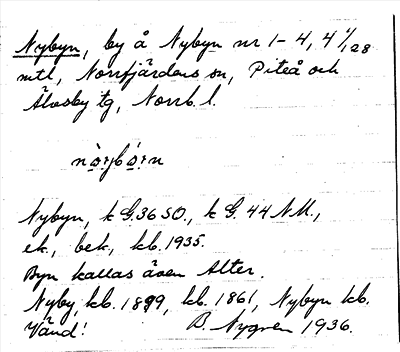 Nybyn, by å Nybyn nr 1-4, 4 1/128
mtl, Norrfjärdens sn, Piteå och
Älvsby tg, Norrb. l.
Nybyn, k G. 36 SO., k G. 44 NV.,
ek., bek., kb. 1935.
Byn kallas även Alter.
Nyby, kb. 1899, kb. 1861, Nybyn kb.
Vänd! B. Nygren 1936.